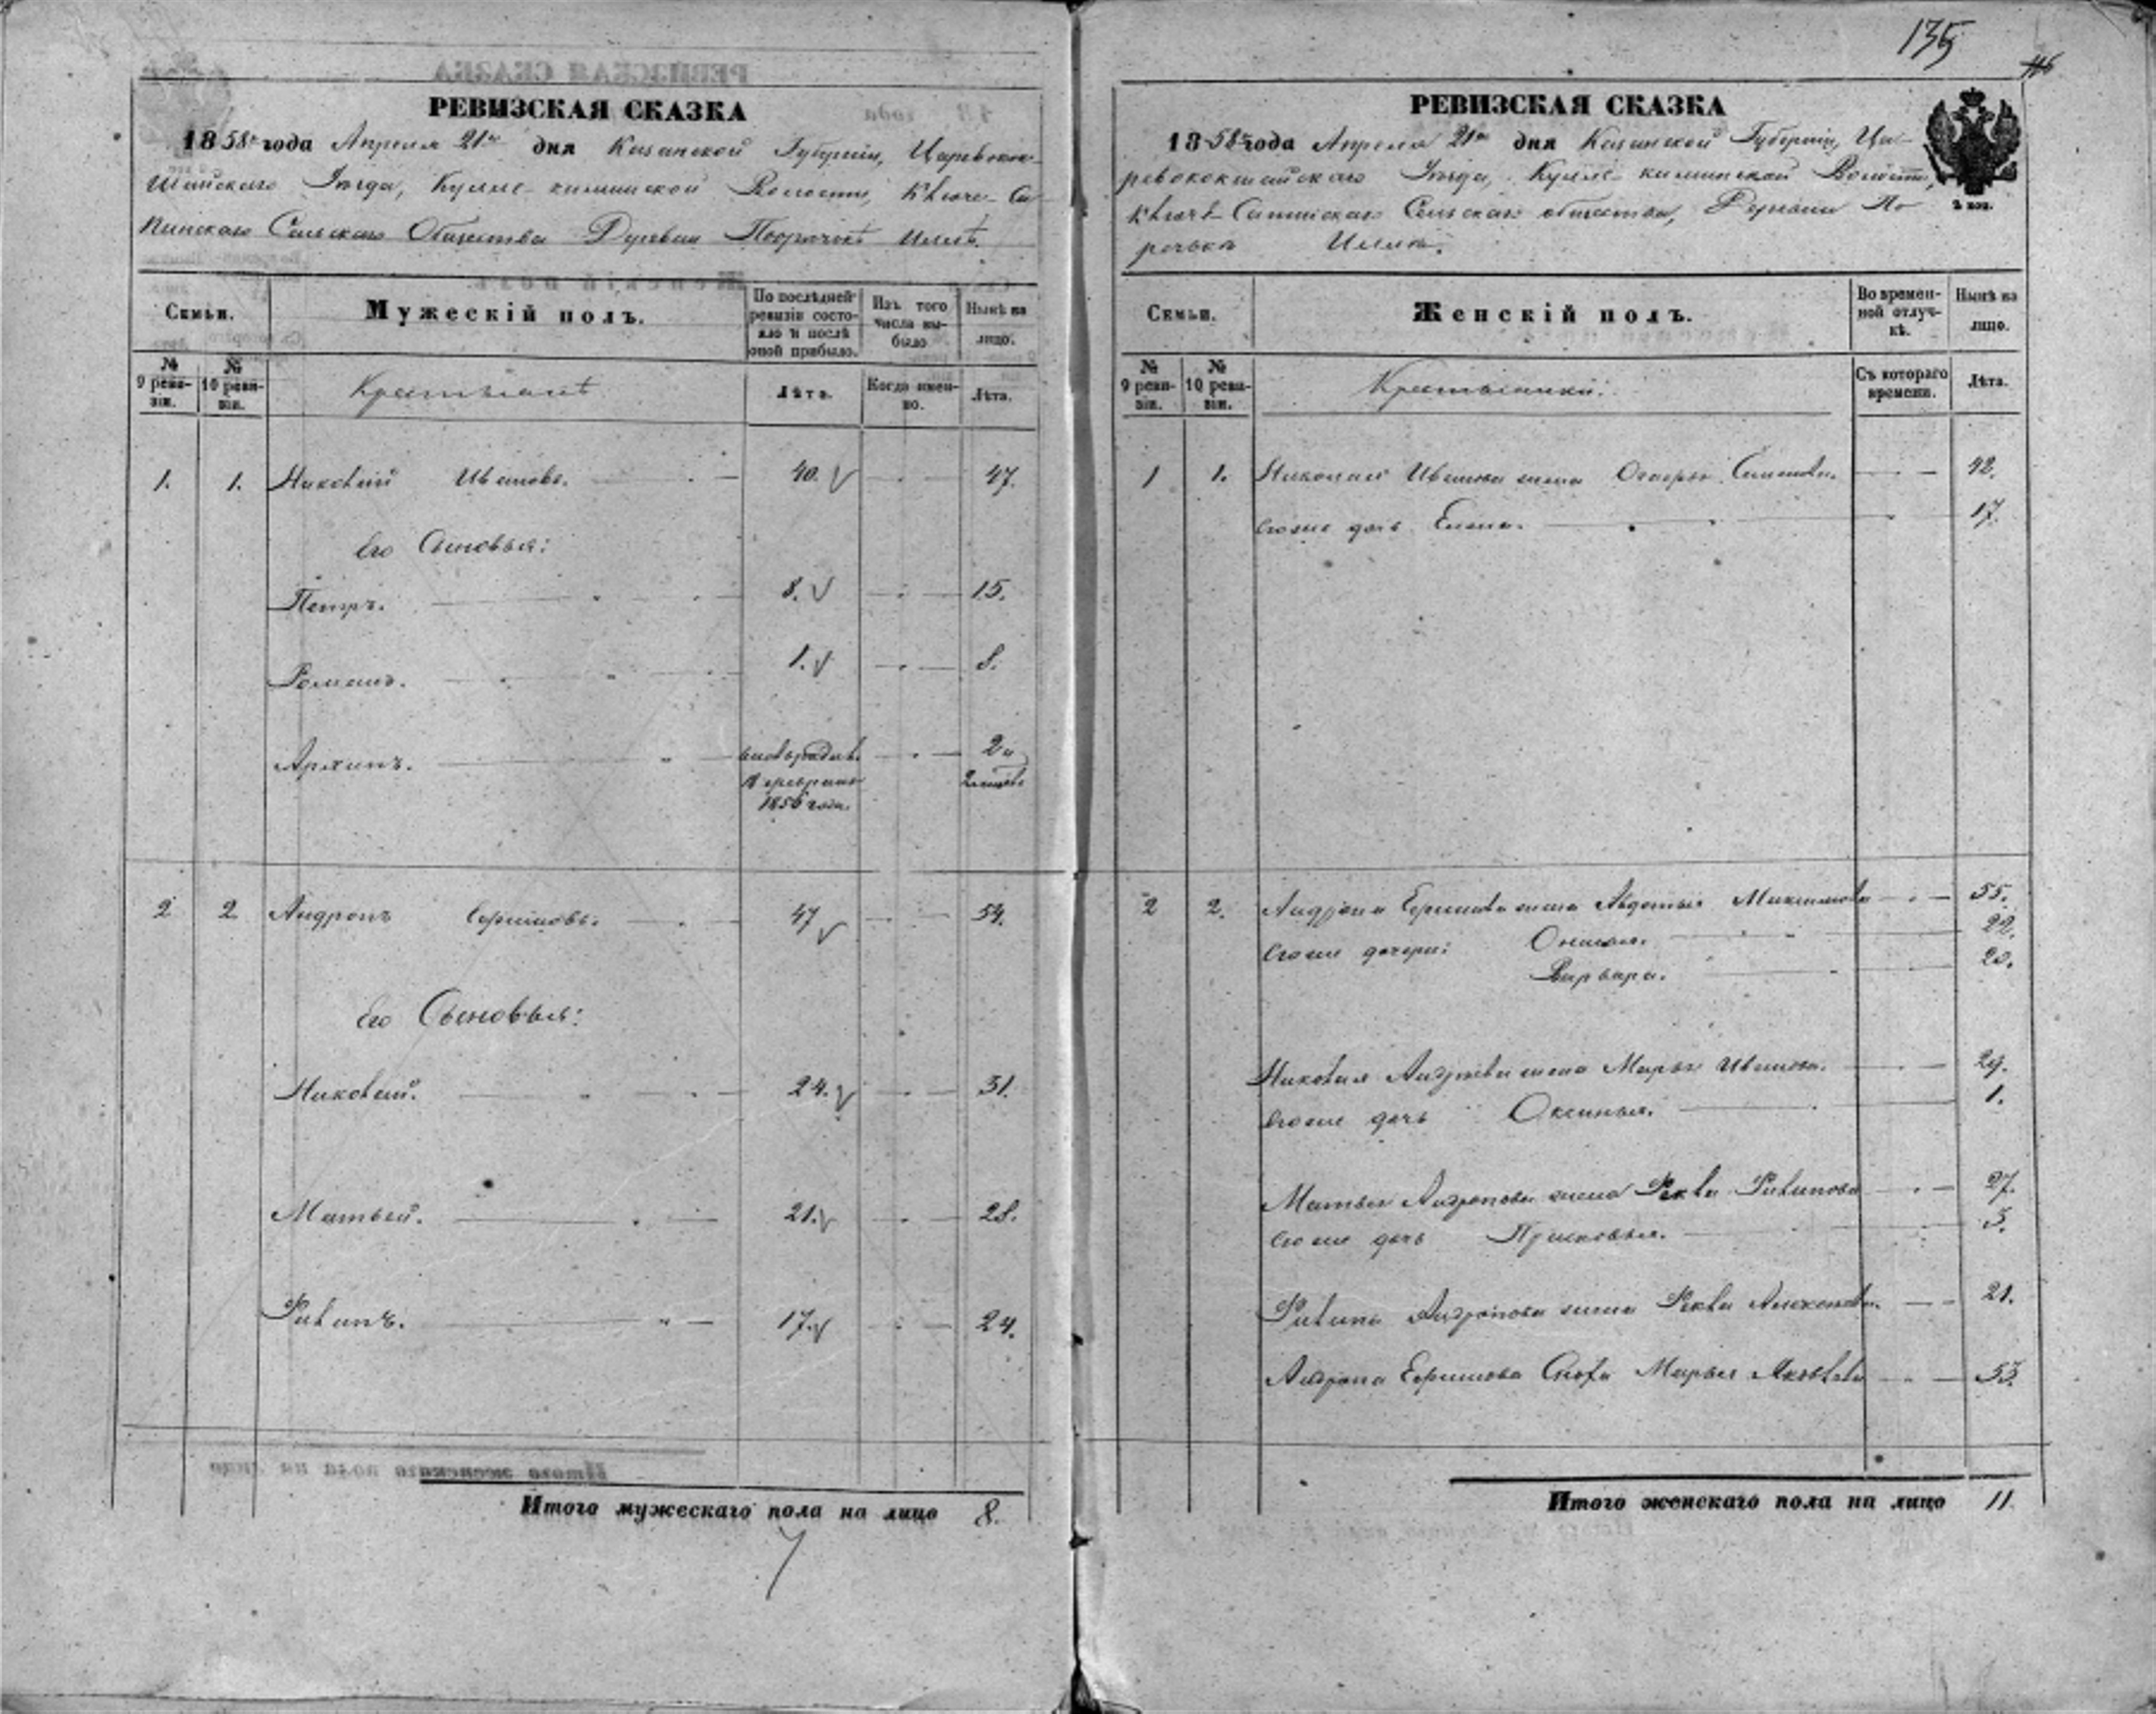 135
РЕВИЗСКАЯ СКАЗКА
1858го года Апреля 21го дня Казанской Губернiи, Царевокок-
шайскаго Уѣзда, Кулле-киминской Волости, Ключе-Са
пинскаго Сельскаго Общества Деревни Поѣ Илеть
Семьи.
Мужескiй полъ.
По послѣдней ревизiи состо-яло и послѣ оной прибыло.
Изъ того числа вы-было
Нынѣ на лицо.
№ 9 реви-зiи.
№ 10 реви-зiи.
Крестьянѣ
Лѣта.
Когда имен-но.
Лѣта.
1. 1. Николай Ивановъ. 40. 47.
Его Сыновья:
Петръ. 8. 15.
Романъ. 1. 8.
Архипъ. 2
1856 года.
2 2 Андронъ Ефимовъ. 47 54.
Его Сыновья:
Николай. 24. 31.
Матвей. 21. 28.
Филипъ. 17. 24.
Итого мужескаго пола на лицо 8.
7
РЕВИЗСКАЯ СКАЗКА
1858го года Апреля 21го дня Казанской Губернiи, Ца-
ревококшайскаго Уѣзда, Кулле-киминской Волости,
Ключе-Сапинскаго Сельскаго общества, Деревни По
речька Илеть.
2 коп.
Семьи.
Женскiй полъ.
Во времен-ной отлуч-кѣ.
Нынѣ на лицо.
№ 9 реви-зiи.
№ 10 реви-зiи.
Крестьянки.
Съ котораго времени.
Лѣта.
1 1. Николая Иванова жена 42.
Его же дочь Елена. 17.
2 2. Андрона Ефимова жена Авдотья Максимова 55.
Его же дочери: 22.
Варвара. 20.
Николая Андронова жена Марья Иванова. 29.
Его же дочь Оксинья. 1.
Матвея Андронова жена Фекла Филипова 27.
Его же дочь Прасковья. 5.
Филипа Андронова жена Фекла 21.
Андрона Ефимова Сноха Марья Яковлева 53.
Итого женскаго пола на лицо 11.